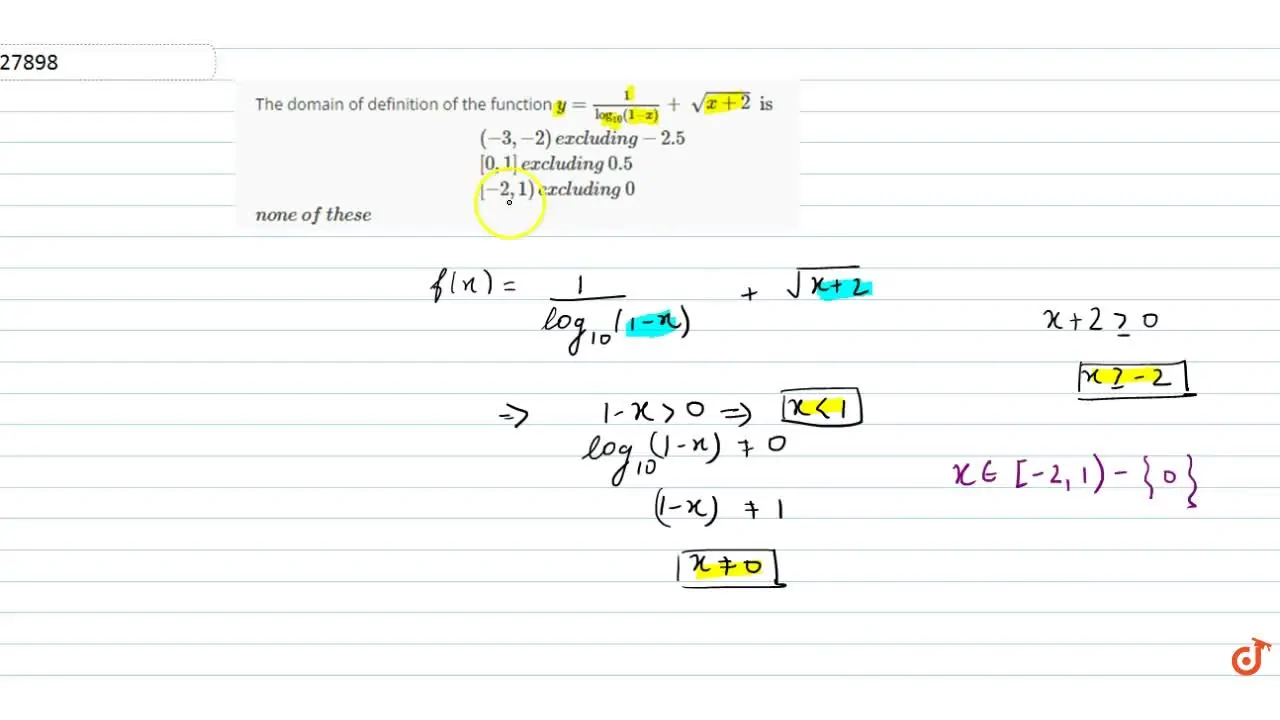 27898
The domain of definition of the function y = 1/log₁₀(1−x) + √(x+2) is
(−3, −2) excluding − 2.5
[0, 1] excluding 0.5
[−2, 1) excluding 0
none of these
f(x) = 1/log₁₀(1-x) + √(x+2)
x+2 ≥ 0
x ≥ -2
⇒ 1-x > 0 ⇒ x < 1
log₁₀(1-x) ≠ 0
x ∈ [-2, 1) - {0}
(1-x) ≠ 1
x ≠ 0